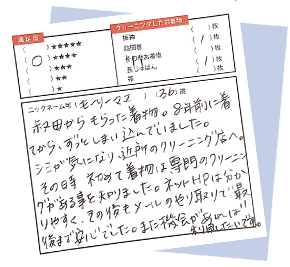 満足度
( )★★★★★
(○)★★★★
( )★★★
( )★★
( )★
クリーニングしたお着物
振袖 ( )枚
訪問着 ( / )枚
( )枚
長じゅばん ( / )枚
帯 ( )枚
ニックネーム可 (モーリーママ) (36)歳
叔母からもらった着物。8年前に着
てから、ずっとしまい込んでいました。
シミが気になり近所のクリーニング店へ。
その時 初めて着物は専門のクリーニン
グがある事を知りました。ネットHPは分か
りやすく、その後もメールのやり取りで最
後まで安心でした。また機会があれば
利用したいです。